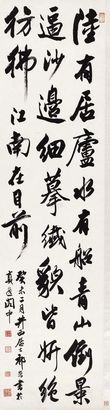 陸有居廬水有船青山倒景
逼沙邊細摹纖貌皆妍絕
彷彿江南在目前
癸未 月井西居士 書於
閣中